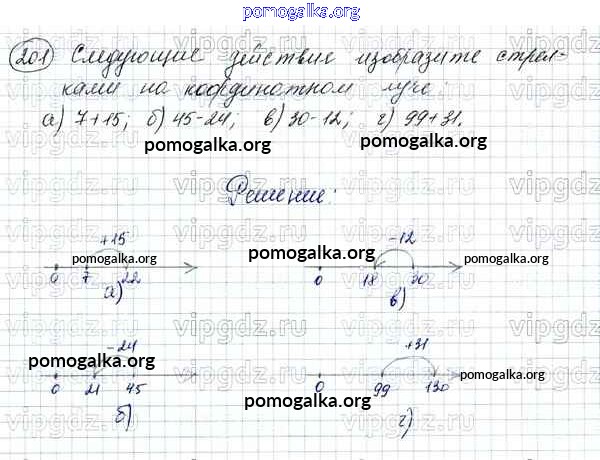 pomogalka.org
201 Следующие действие изобразите стрел-
ками на координатном луче.
а) 7+15; б) 45-24; в) 30-12; г) 99+31.
pomogalka.org pomogalka.org
Решение:
+15 -12
pomogalka.org pomogalka.org pomogalka.org
0 7 22 0 18 30
а) в)
-24 +31
pomogalka.org pomogalka.org
0 21 45 0 99 130
pomogalka.org
б) г)
vipgdz.ru